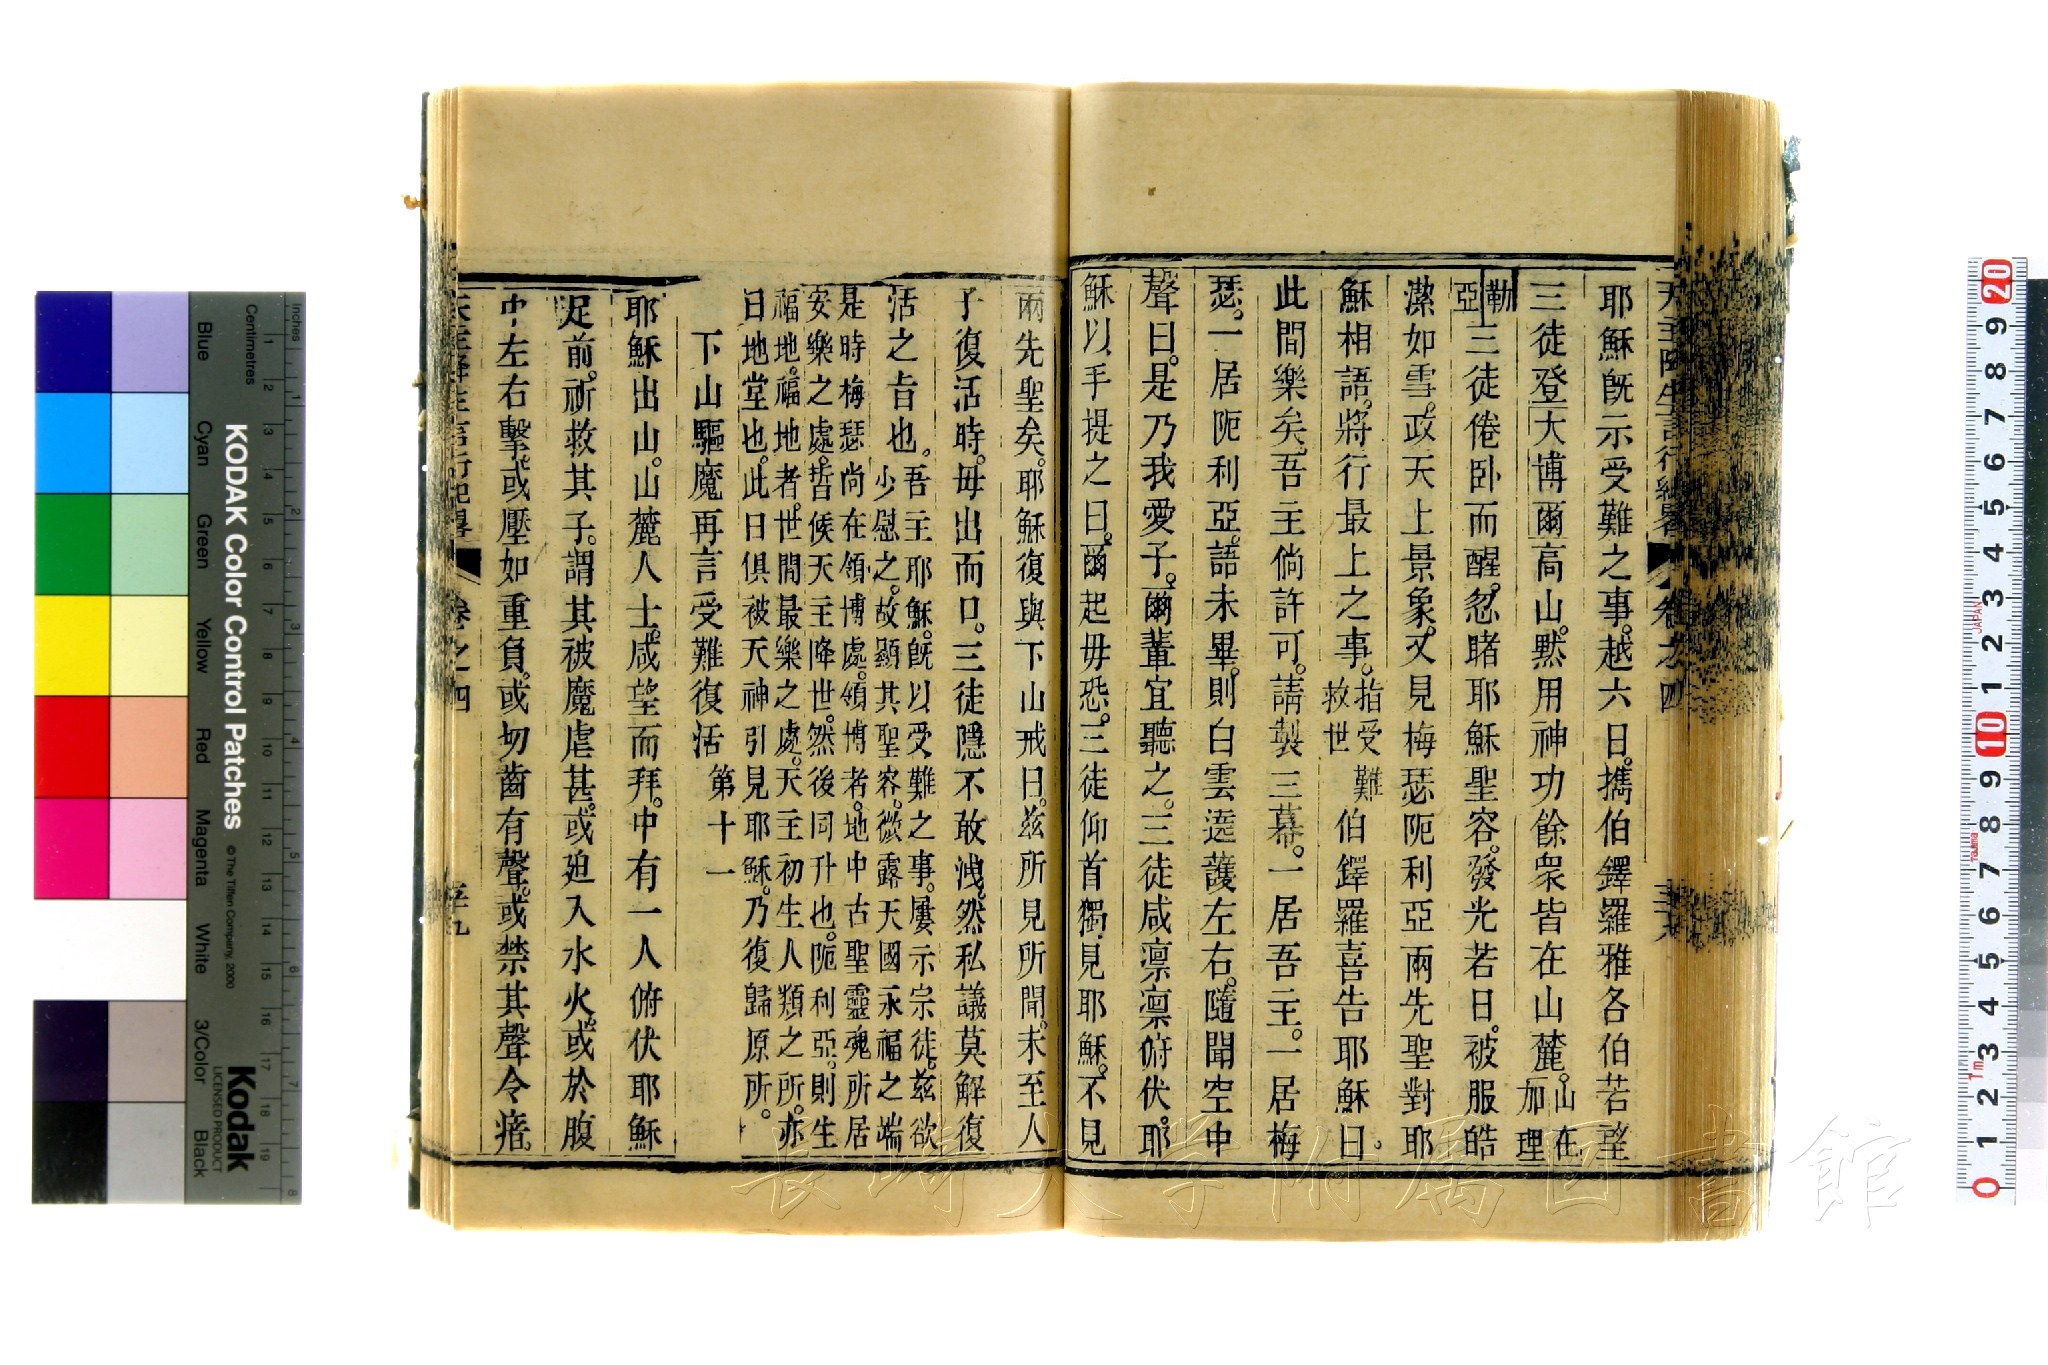 天主降生言行紀畧 卷之四
耶穌旣示受難之事。越六日。攜伯鐸羅雅各伯若望
三徒登大博爾高山。黙用神功餘衆皆在山麓。山在加理
勒亞三徒倦卧而醒。忽睹耶穌聖容。發光若日。被服皓
潔如雪。政天上景象。又見梅瑟阨利亞兩先聖對耶
穌相語。將行最上之事。指受難救世伯鐸羅喜告耶穌曰。
此間樂矣。吾主倘許可。請製三幕。一居吾主。一居梅
瑟。一居阨利亞。語未畢。則白雲遶護左右。隨聞空中
聲曰。是乃我愛子。爾輩宜聽之。三徒咸凛凛俯伏。耶
穌以手提之曰。爾起毋恐。三徒仰首獨見耶穌。不見
兩先聖矣。耶穌復與下山戒曰。兹所見所聞。未至人
子復活時。毋出而口。三徒隱不敢洩。然私議莫解復
活之旨也。吾主耶穌。旣以受難之事。屢示宗徒。兹欲
少慰之。故顯其聖容。微露天國永福之端
是時梅瑟尚在領博處。領博者。地中古聖靈魂所居
安樂之處。皆候天主降世。然後同升也。阨利亞。則生
福地。福地者。世間最樂之處。天主初生人類之所。亦
曰地堂也。此日俱被天神引見耶穌。乃復歸原所。
下山驅魔再言受難復活 第十一
耶穌出山。山麓人士。咸望而拜。中有一人俯伏耶穌
足前。祈救其子。謂其被魔虐甚。或迫入水火。或於腹
中左右擊。或壓如重負。或切齒有聲。或禁其聲令瘖。
天主降生言行紀畧 卷之四
長崎大学附属図書館
KODAK Color Control Patches
© The Tiffen Company, 2000
Kodak
LICENSED PRODUCT
Inches
Centimetres
Blue Cyan Green Yellow Red Magenta White 3/Color Black
1 2 3 4 5 6 7 8
1 2 3 4 5 6 7 8 9 10 11 12 13 14 15 16 17 18 19
20 9 8 7 6 5 4 3 2 1 10 9 8 7 6 5 4 3 2 1 0
JAPAN
Tajima
1m